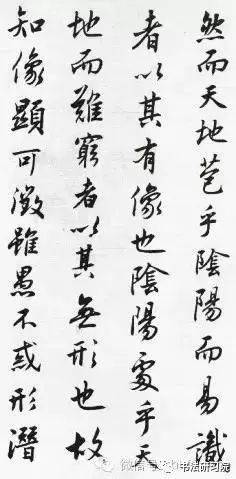 然而天地苞乎陰陽而易識
者以其有像也陰陽處乎天
地而難窮者以其無形也故
知像顯可徵雖愚不惑形潛
书法研习院